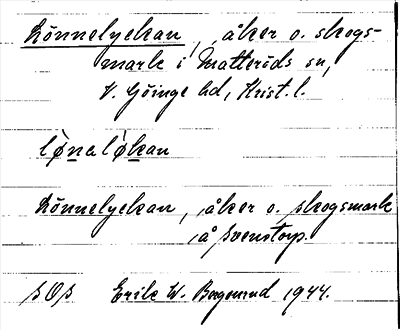 Lönnelyckan, åker o. skogs-
mark i Matteröds sn,
V. Göinge hd, Krist. l.
lø̀nalø̀kan
Lönnelyckan, åker o. skogsmark
å Svenstorp.
SOS Erik W. Bergenrud 1944.